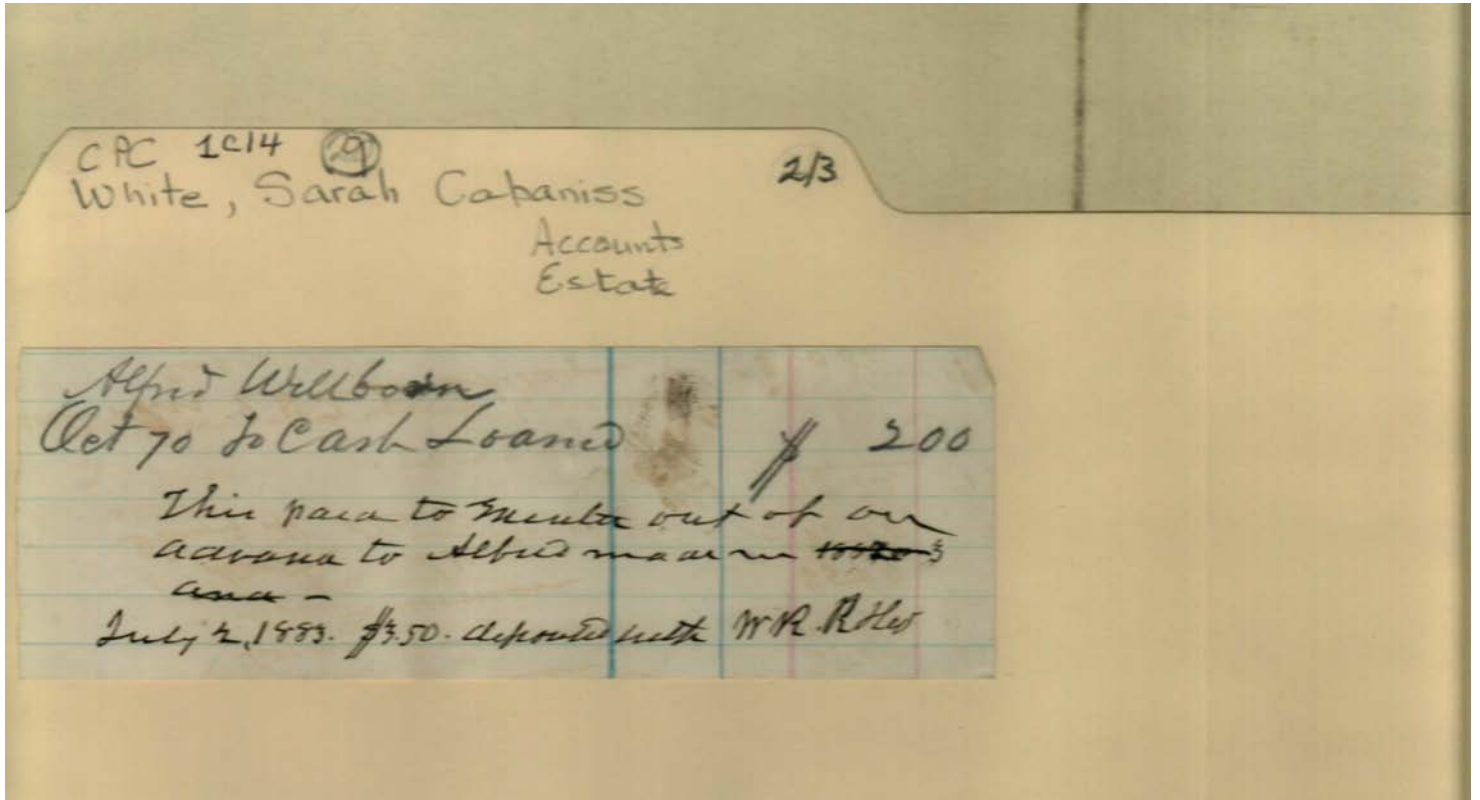 CPC 1C14 29
White, Sarah Cabaniss 2/3
Accounts
Estate
Alfred Wellborn
Oct 70 To Cash Loaned $ 200
This paid to out of our
advance to Alfred made in
and -
July 2, 1883. $3.50. deposited with W.R.